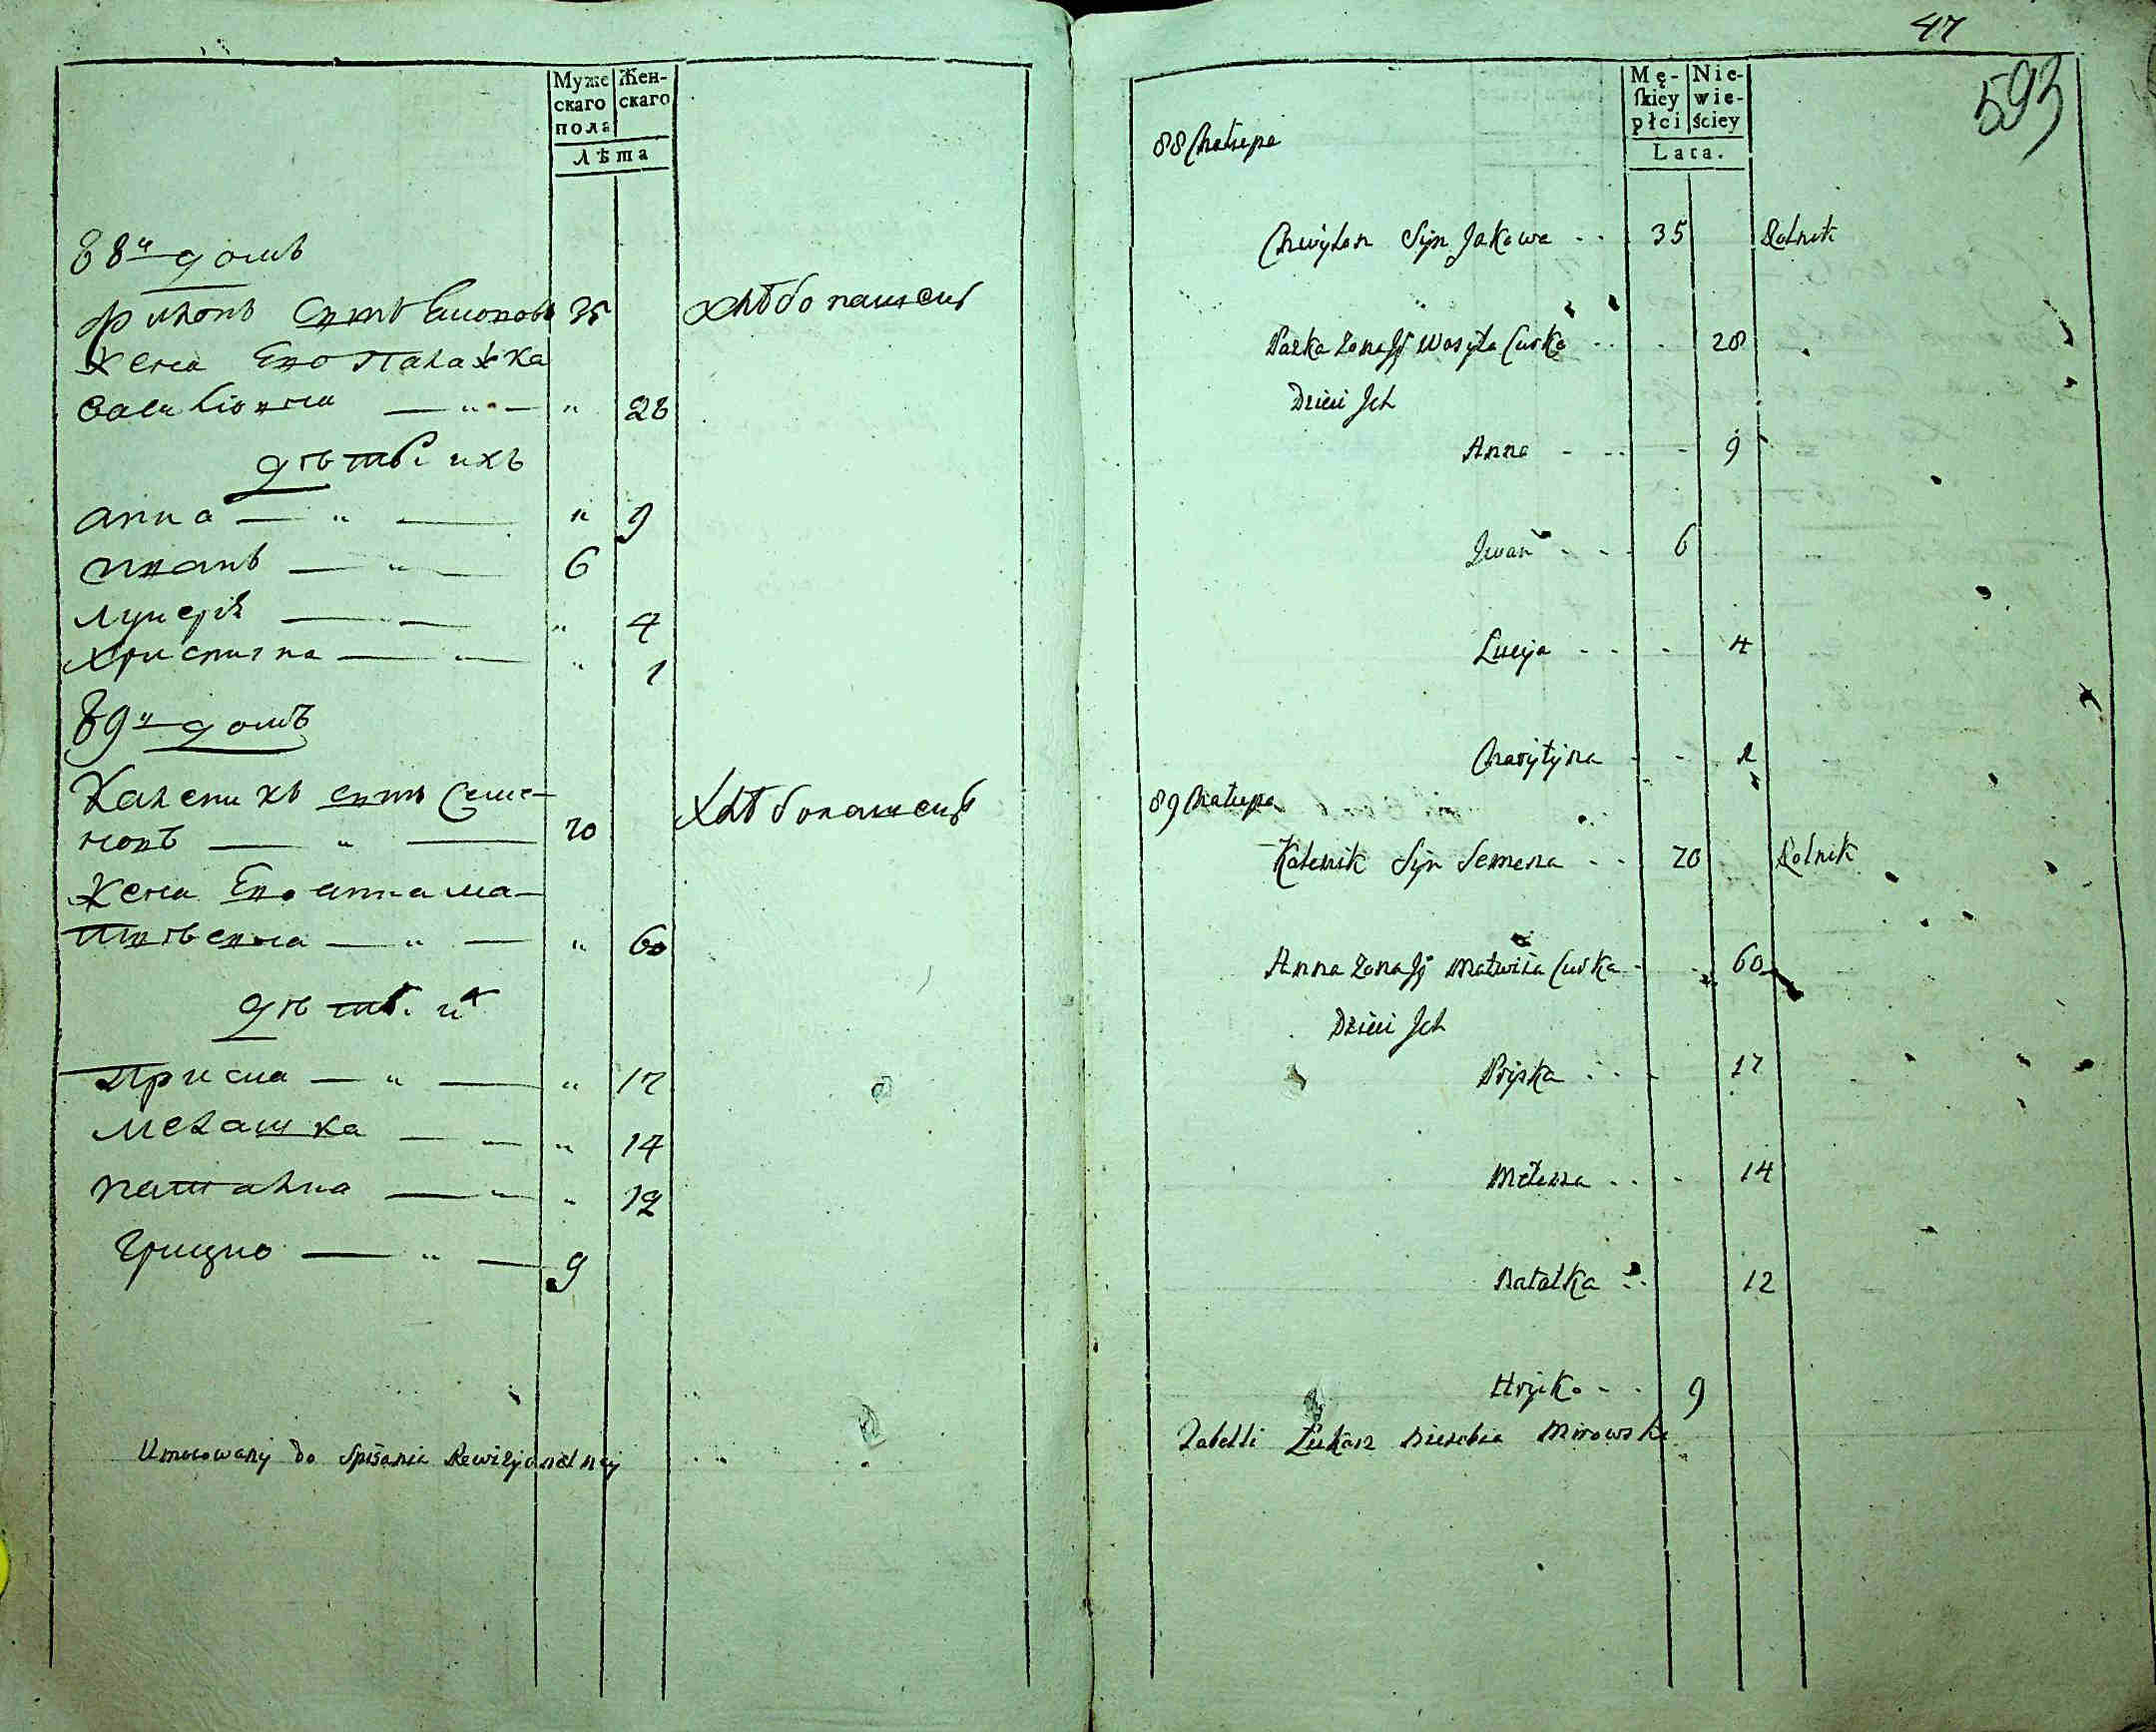 Муже
скаго
пола
Жен-
скаго
Лѣта
88й домъ
Филонъ сынъ 35 хлѣбопашецъ
жена Ево Палажка
Василіовна — " — " 28
дѣти ихъ
анна — " — " 9
иванъ — " — 6
Луцерія — — " 4
Христина — " — " 1
89й домъ
Каленикъ сынъ Семе-
новъ — " — 70 Хлѣбопашецъ
жена Ево анна ма-
твѣевна — " — " 60
дѣти их
Приска — " — " 17
Мелашка — — " 14
наталка — " " 12
Грицко — " — 9
Umocowany do Spisania Rewizyonalney
47
593
Mę-
skiey
płci
Nie-
wie-
ściey
Lata.
88 Chałupa
Chwyłon Syn Jakowa - - 35 Rolnik
Paszka Zona Jj Wasyla Curka - - 28
Dzieci Jch
Anna - - - 9
Jwan - - 6
Lucyja - - - 4
Charytyna - -
89 Chałupa
Kalenik Syn Semena - - 70 Rolnik
Anna Zona Jj Matwija Curka - - 60
Dzieci Jch
Pryska - - - 17
14
Natalka - - 12
Hryćko - - 9
Tabelli Łukasz Mirowski